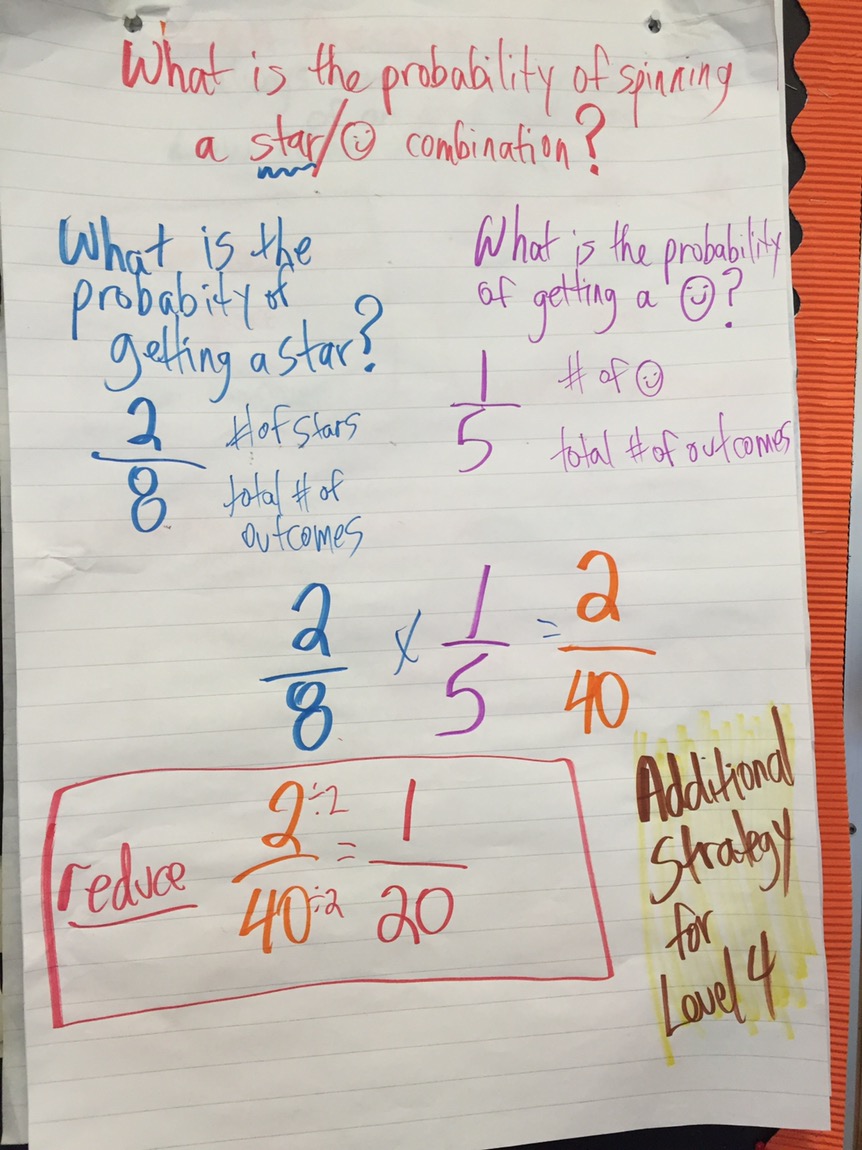 What is the probability of spinning
a star/☺ combination?
What is the
probabity of
getting a star?
2/8 # of stars
total # of
outcomes
What is the probability
of getting a ☺?
1/5 # of ☺
total # of outcomes
2/8 x 1/5 = 2/40
reduce 2÷2/40÷2 = 1/20
Additional
Strategy
for
Level 4